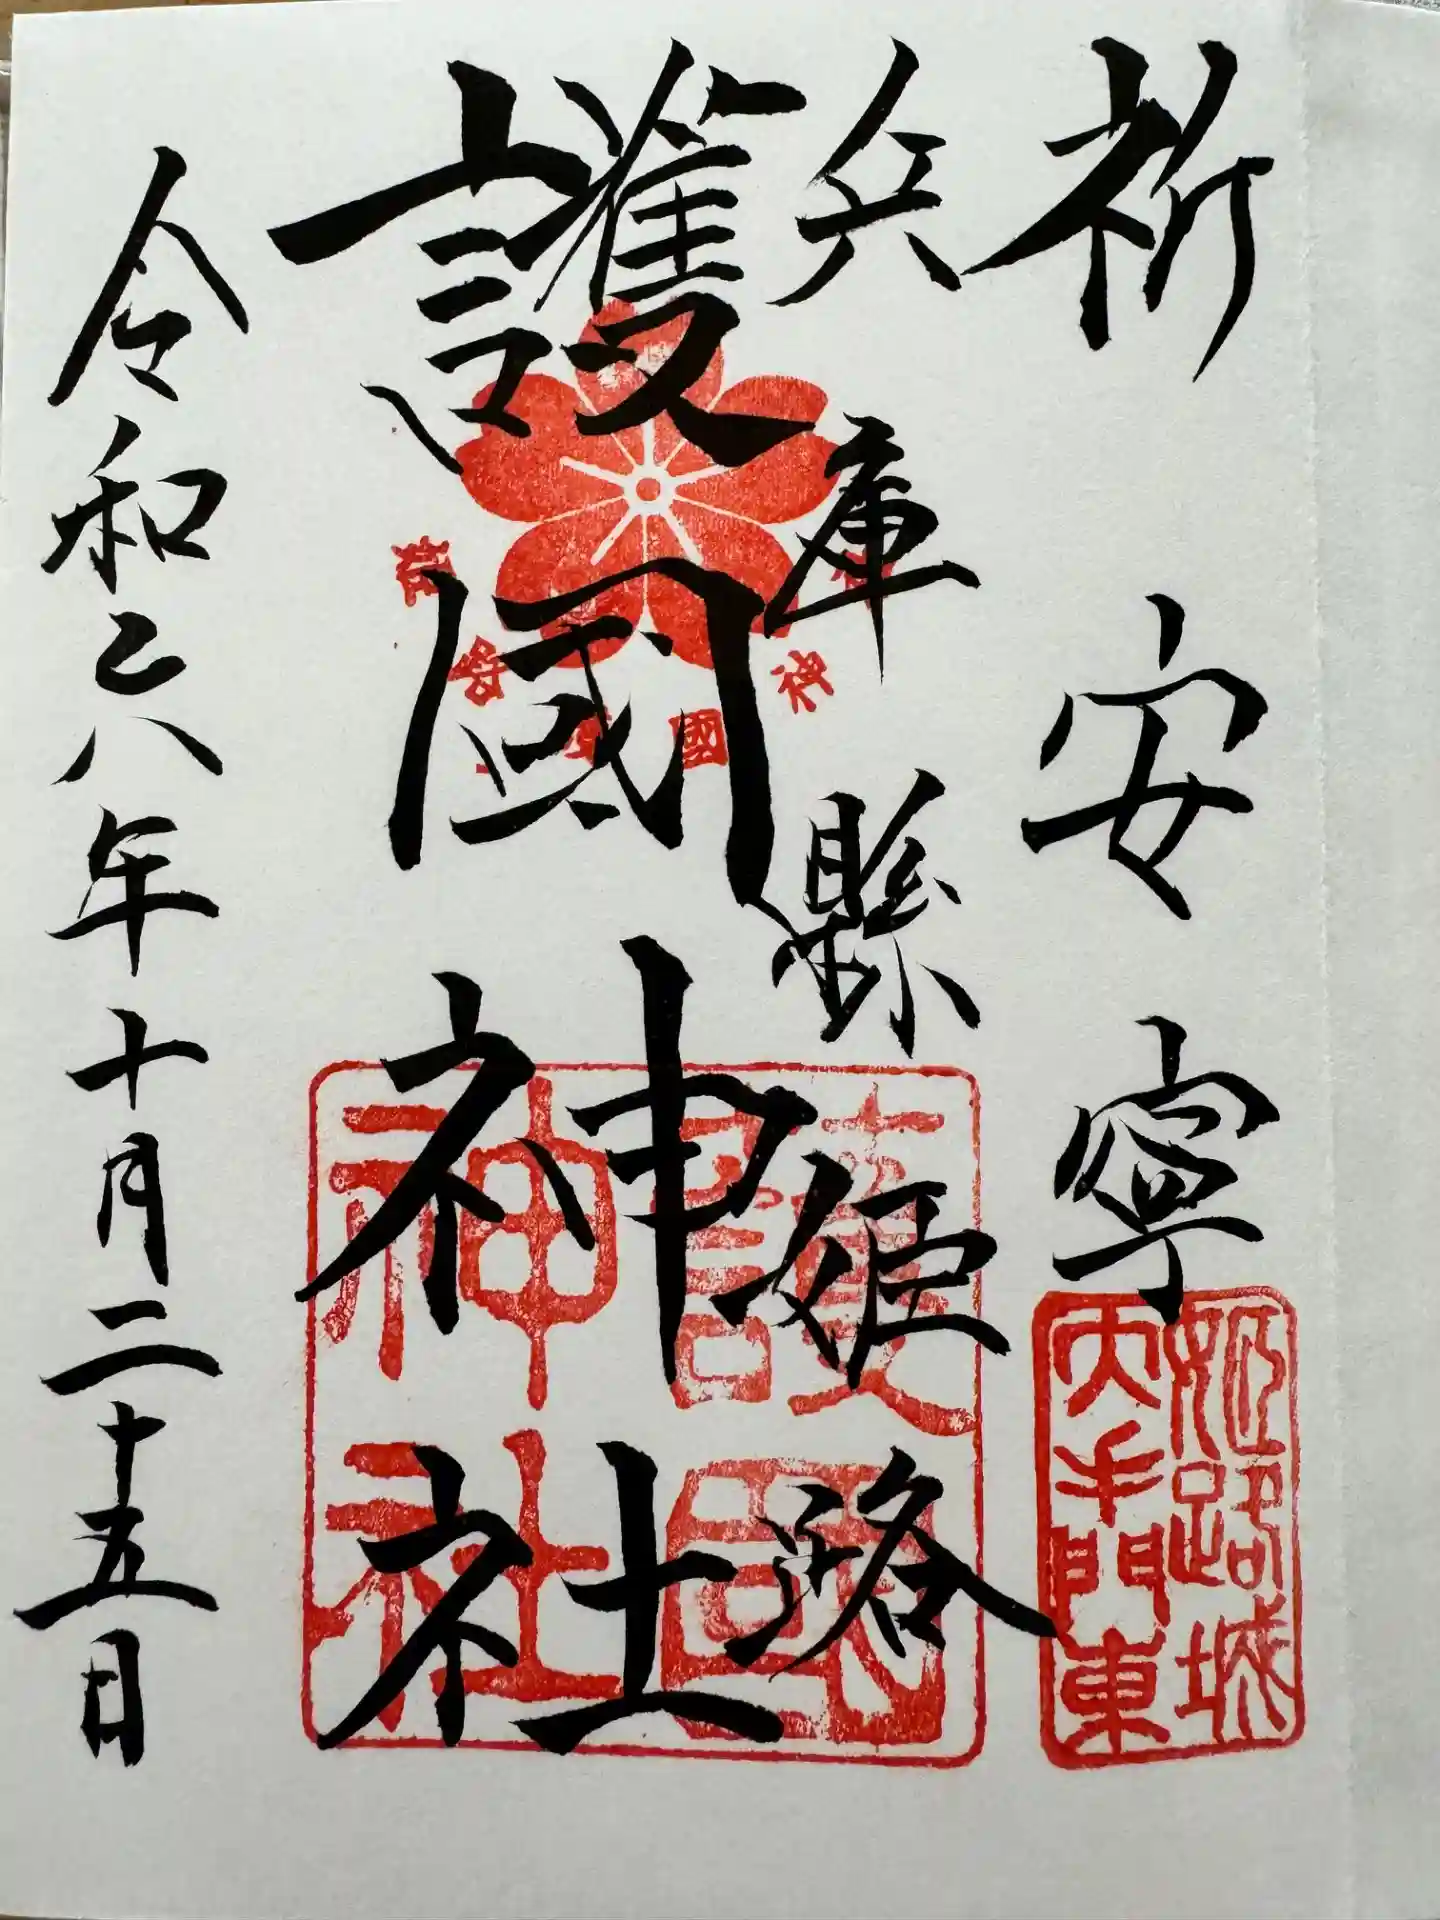 祈安寧
兵庫縣姫路
護國神社
令和六年十月二十五日
護國神社
姫路城
大手門東